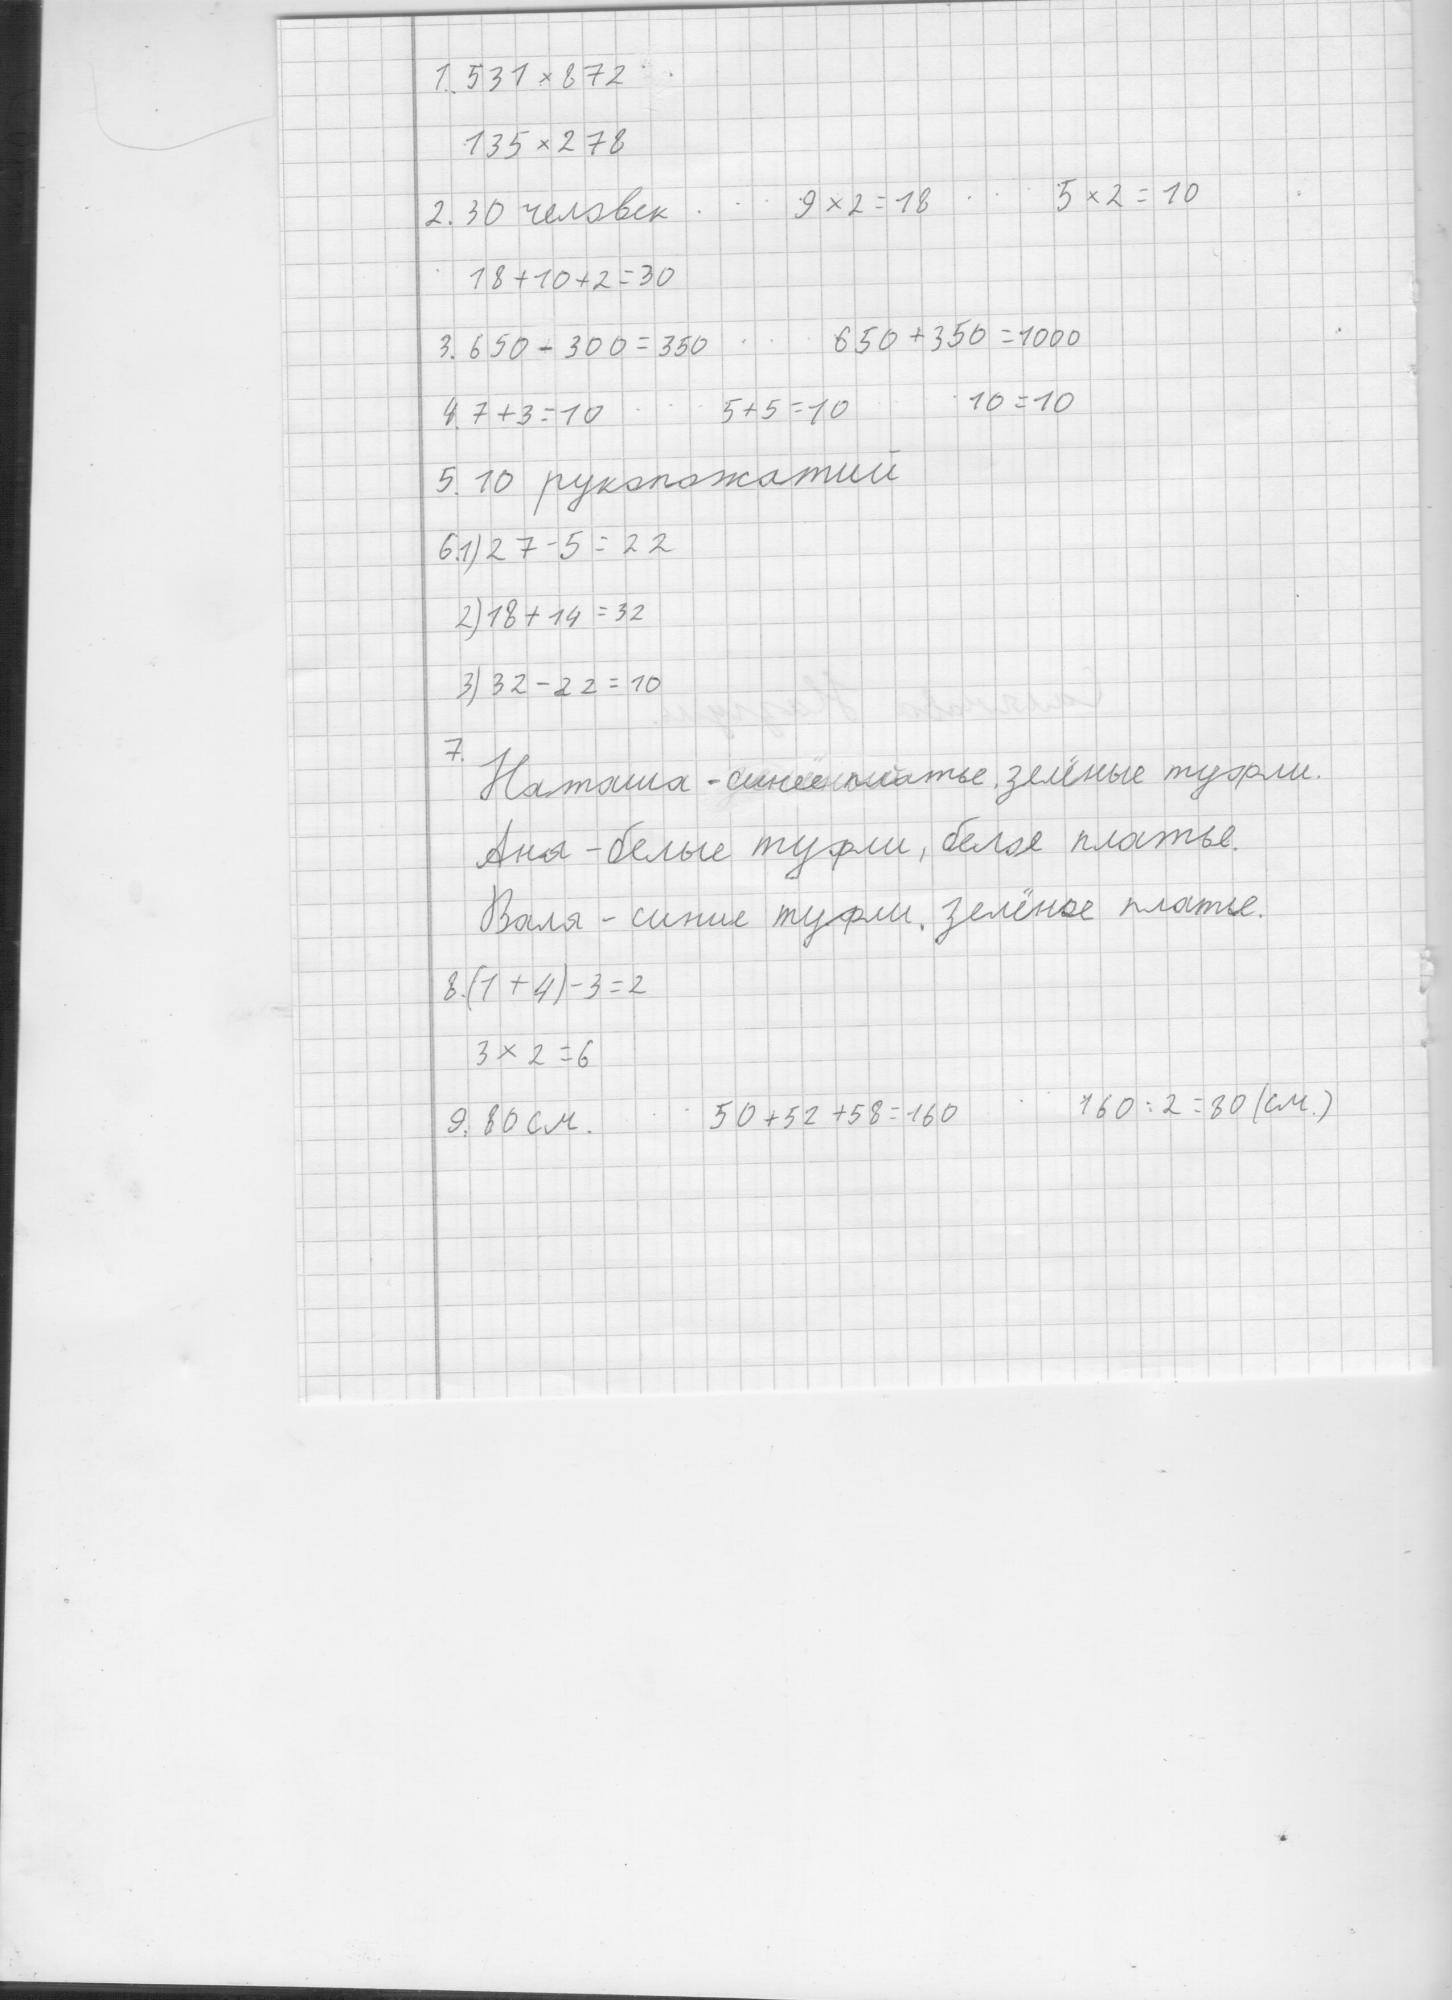 1. 531 × 872
135 × 278
2. 30 человек 9 × 2 = 18 5 × 2 = 10
18 + 10 + 2 = 30
3. 650 - 300 = 350 650 + 350 = 1000
4. 7 + 3 = 10 5 + 5 = 10 10 = 10
5. 10 рукопожатий
6. 1) 27 - 5 = 22
2) 18 + 14 = 32
3) 32 - 22 = 10
7.
Наташа - синее платье, зелёные туфли.
Аня - белые туфли, белое платье.
Валя - синие туфли, зелёное платье.
8. (1 + 4) - 3 = 2
3 × 2 = 6
9. 80 см. 50 + 52 + 58 = 160 160 : 2 = 80 (см.)